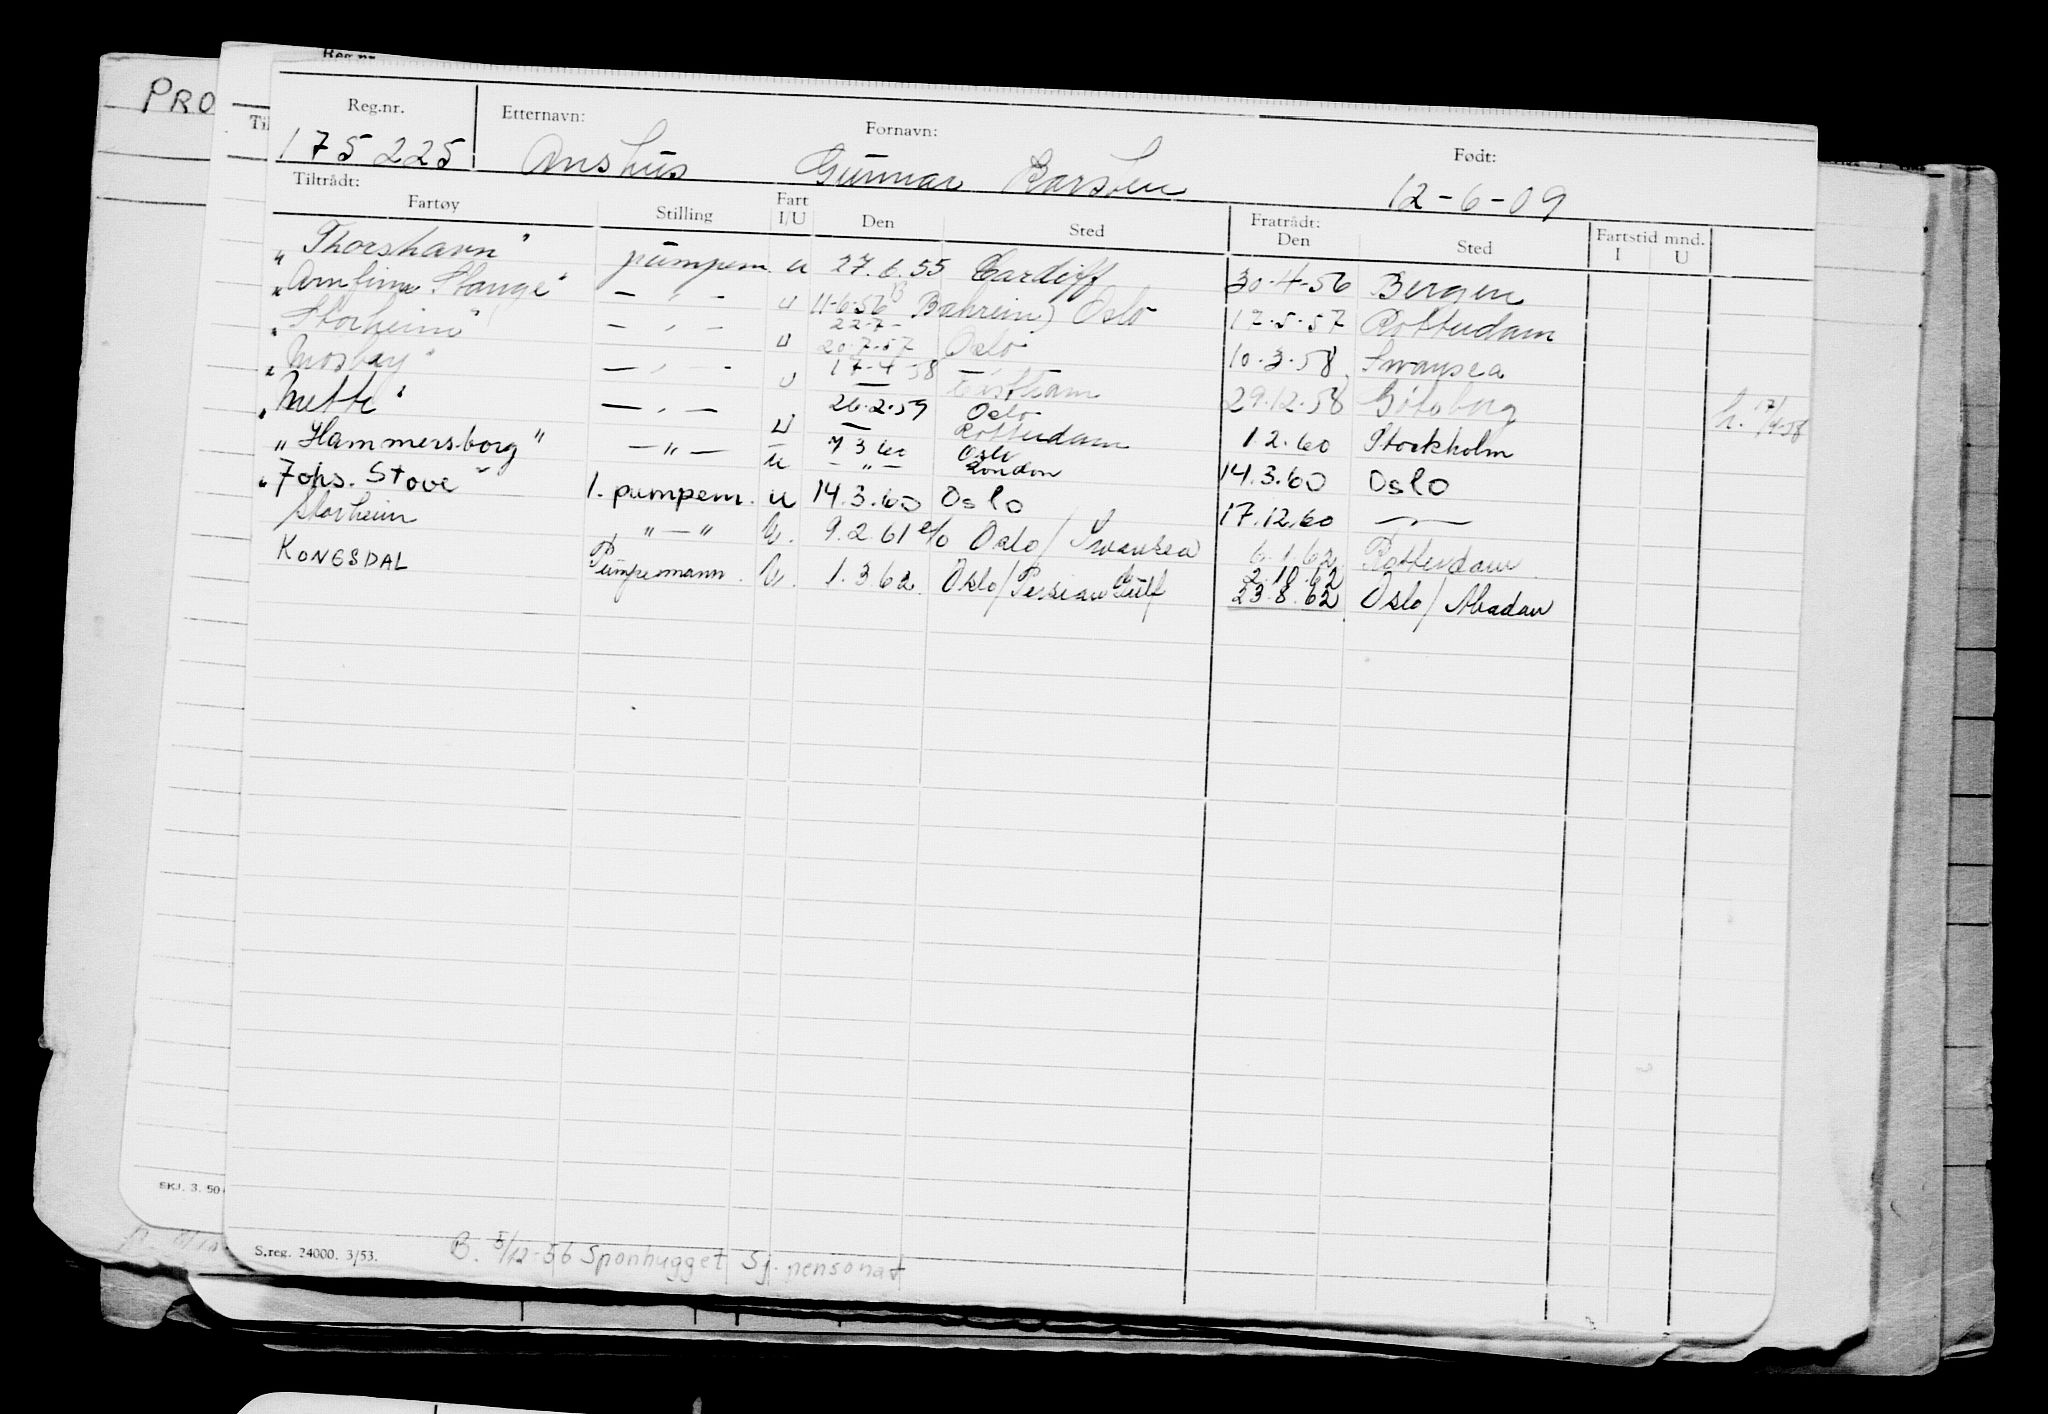 Reg.nr.
PRO
Til
Reg.nr. Etternavn: Fornavn: Født:
175225 Anshus Gunnar Karsten 12-6-09
Tiltrådt:
Fartøy Stilling Fart I/U Den Sted Fratrådt: Den Sted Fartstid mnd. I U
"Thorshavn" pumpem. u 27.6.55 Cardiff 30-4-56 Bergen
"Arnfinn Stange" — " — u 11-6-56 Bahrein) Oslo 17-5-57 Rotterdam
22-7-
"Storheim" — " — u 20-7-57 Oslo 10-3-58 Swansea
"Mosbay" — " — u 17-4-58 Eastham 29.12.58 Göteborg h. 17/4-58
"Mette" — " — u 26.2.59 Oslo Rotterdam 1 2.60 Stockholm
"Hammersborg" — " — u 7 3 60 Oslo London 14.3.60 Oslo
— " —
"Johs. Stove" 1. pumpem. u 14.3.60 Oslo 17.12.60 — " —
Storheim " — " U. 9.2.61 e/o Oslo / Swansea 6.1.62 Rotterdam
KONGSDAL Pumpemann U. 1.3.62 Oslo / Persian Gulf 2.10.62
23.8.62 Oslo / Abadan
SKJ. 3. 50
S.reg. 24000. 3/53. B. 5/12-56 Sponhugget Sj. pensonat